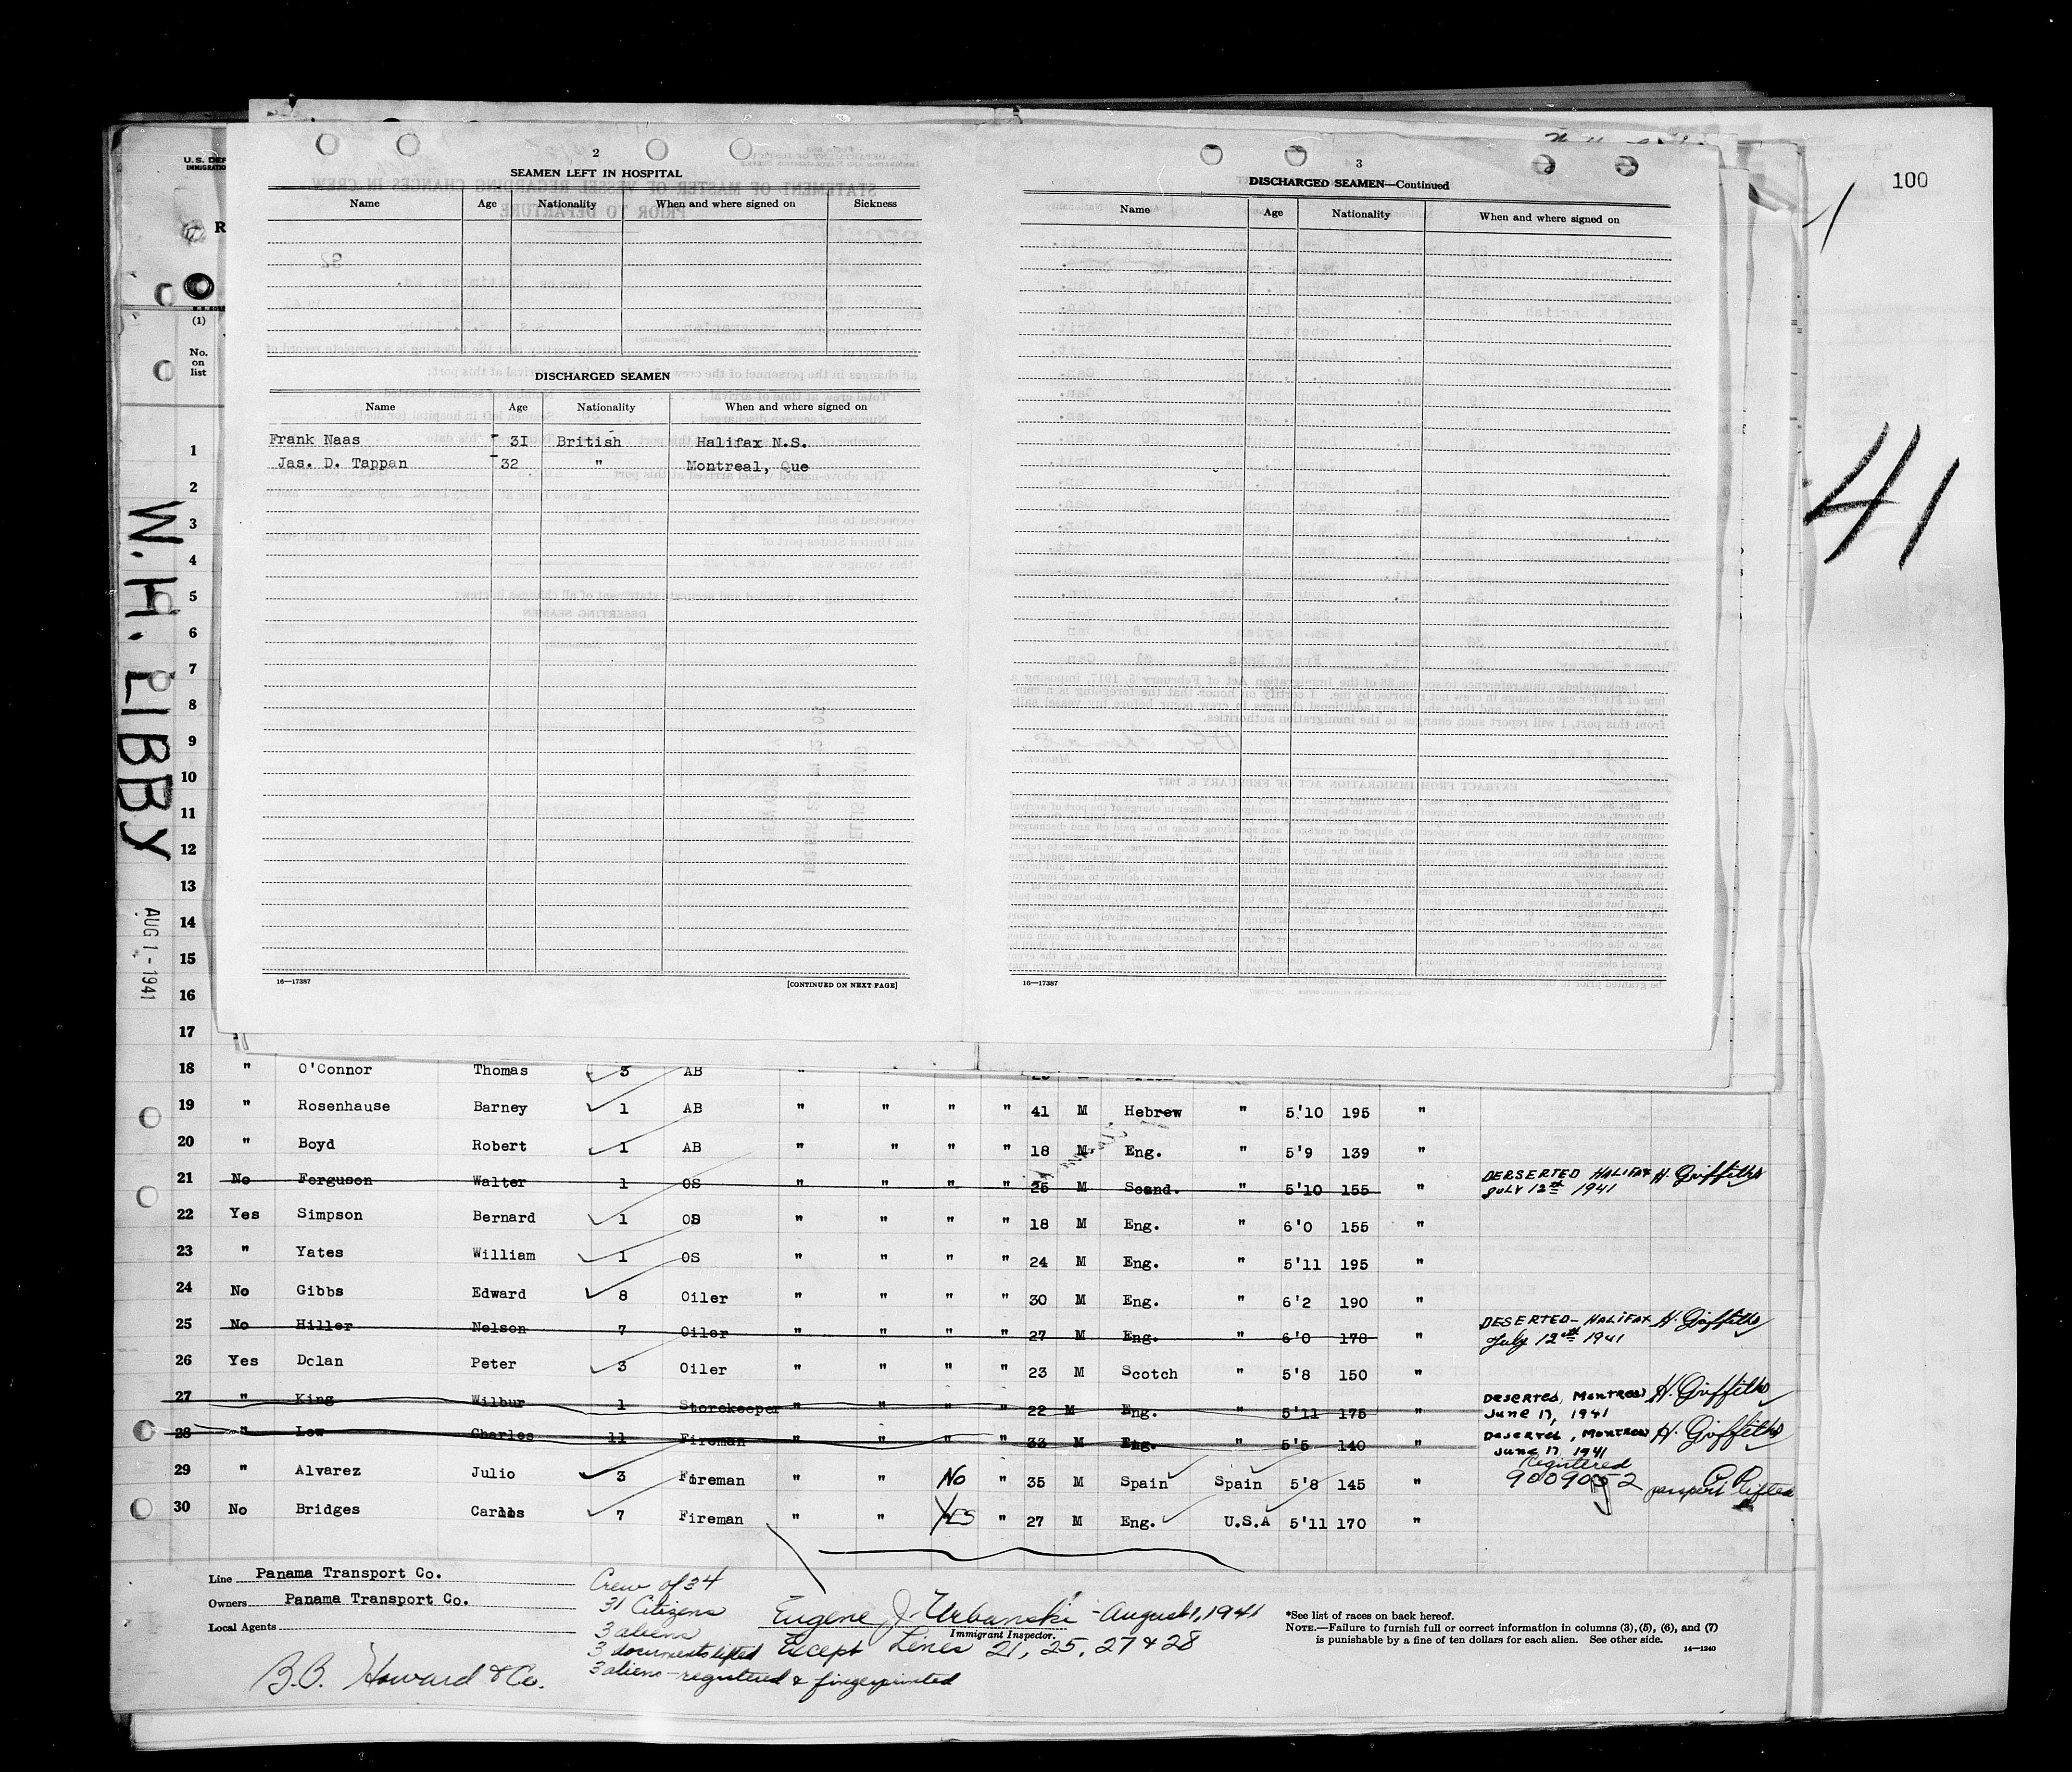 100
41
U.S. DEP
IMMIGRATION
R
(1)
No.
on
list
W. H. LIBBY
AUG 1 - 1941
2
SEAMEN LEFT IN HOSPITAL
Name Age Nationality When and where signed on Sickness
DISCHARGED SEAMEN
Name Age Nationality When and where signed on
Frank Naas 31 British Halifax N.S.
Jas. D. Tappan 32 " Montreal, Que
16—17387 [CONTINUED ON NEXT PAGE]
3
DISCHARGED SEAMEN—Continued
Name Age Nationality When and where signed on
16—17387
1
2
3
4
5
6
7
8
9
10
11
12
13
14
15
16
17
18 " O'Connor Thomas 3 AB
19 " Rosenhause Barney 1 AB " " " " 41 M Hebrew " 5'10 195 "
20 " Boyd Robert 1 AB " " " " 18 M Eng. " 5'9 139 "
21 No Ferguson Walter 1 OS " " " " 25 M Scand. " 5'10 155 " DERSERTED HALIFAX H. Griffiths
JULY 12th 1941
22 Yes Simpson Bernard 1 OS " " " " 18 M Eng. " 6'0 155 "
23 " Yates William 1 OS " " " " 24 M Eng. " 5'11 195 "
24 No Gibbs Edward 8 Oiler " " " " 30 M Eng. " 6'2 190 "
25 No Hiller Nelson 7 Oiler " " " " 27 M Eng. " 6'0 178 " DESERTED - HALIFAX H. Griffiths
July 12th 1941
26 Yes Dolan Peter 3 Oiler " " " " 23 M Scotch " 5'8 150 "
27 " King Wilbur 1 Storekeeper " " " " 22 M Eng. " 5'11 175 " Deserted, Montreal H. Griffiths
June 17, 1941
28 " Low Charles 11 Fireman " " " " 33 M Eng. " 5'5 140 " Deserted, Montreal H. Griffiths
June 17, 1941
29 " Alvarez Julio 3 Fireman " " No " 35 M Spain Spain 5'8 145 " Registered
9009052 passport lifted
30 No Bridges Carlos 7 Fireman " " Yes " 27 M Eng. U.S.A 5'11 170 "
Line Panama Transport Co.
Owners Panama Transport Co.
Local Agents
B.B. Howard & Co.
Crew of 34
31 Citizens
3 aliens
3 documents lifted
3 aliens - registered & fingerprinted
Eugene J. Urbanski - August 1, 1941
Immigrant Inspector.
Except Lines 21, 25, 27 & 28
*See list of races on back hereof.
NOTE.—Failure to furnish full or correct information in columns (3), (5), (6), and (7)
is punishable by a fine of ten dollars for each alien. See other side.
14—1240